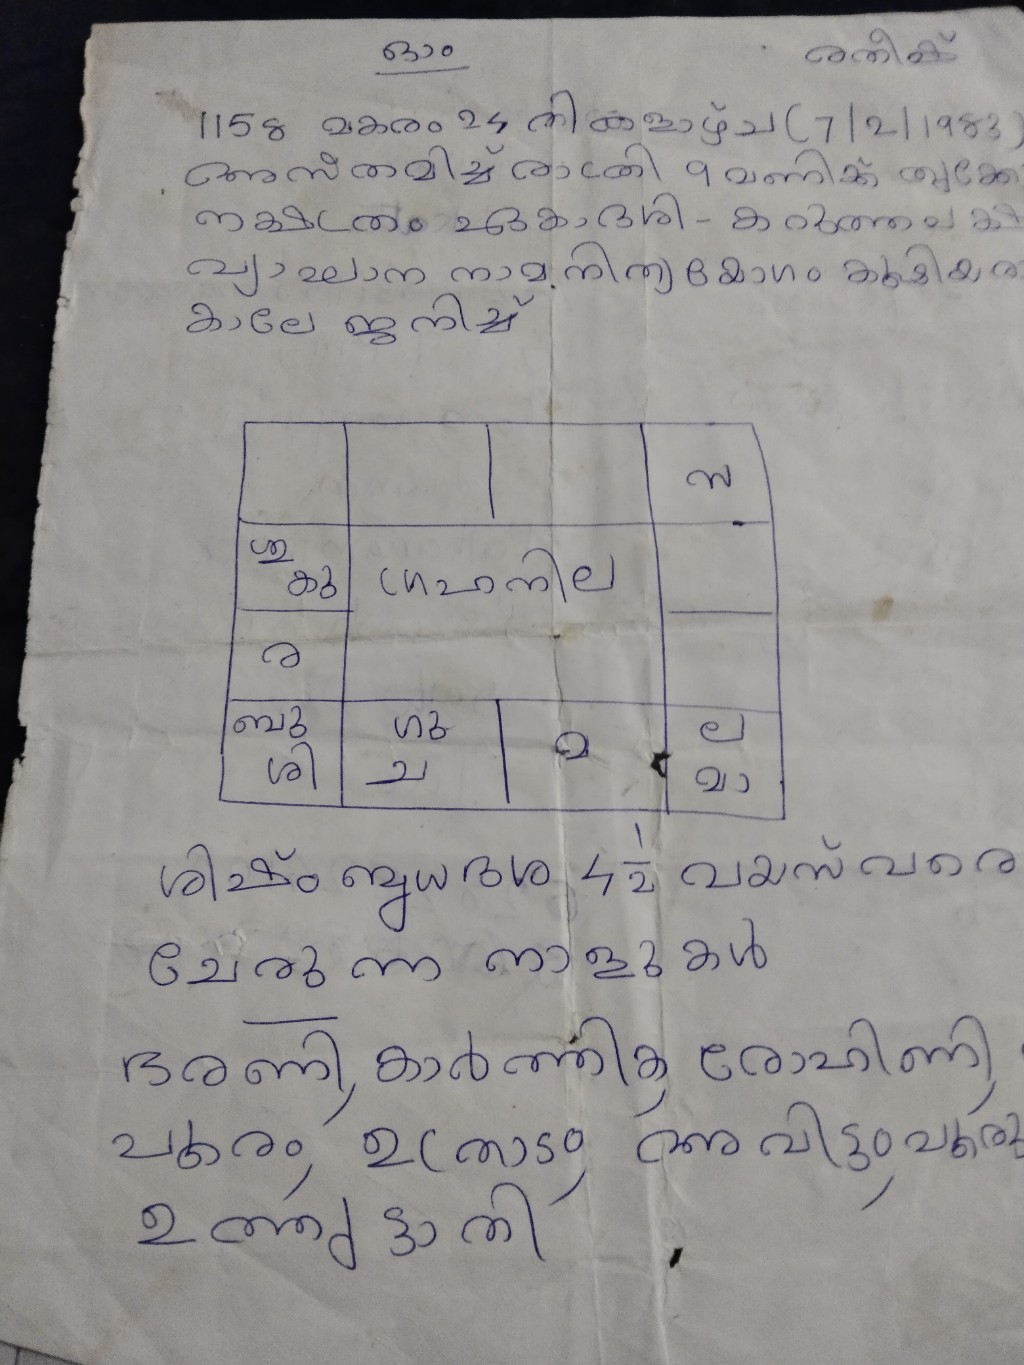 ഓം
രതീഷ്
1158 മകരം 24 തിങ്കളാഴ്ച (7/2/1983)
അസ്തമിച്ച് രാത്രി 9 മണിക്ക് തൃക്കേ
നക്ഷത്രം ഏകാദശി - കറുത്തപക്ഷ
വ്യാഘാന നാമ നിത്യയോഗം കൂടിയ
കാലേ ജനിച്ച്
സ
ശു
കു
ഗ്രഹനില
ര
ബു
ശി
ഗു
ച
മ
ല
മാ
ശിഷ്ടം ബുധദശ 4 1/2 വയസ് വരെ
ചേരുന്ന നാളുകൾ
ഭരണി, കാർത്തിക, രോഹിണി,
പൂരം, ഉത്രാടം, അവിട്ടം, പൂരു
ഉത്തൃട്ടാതി